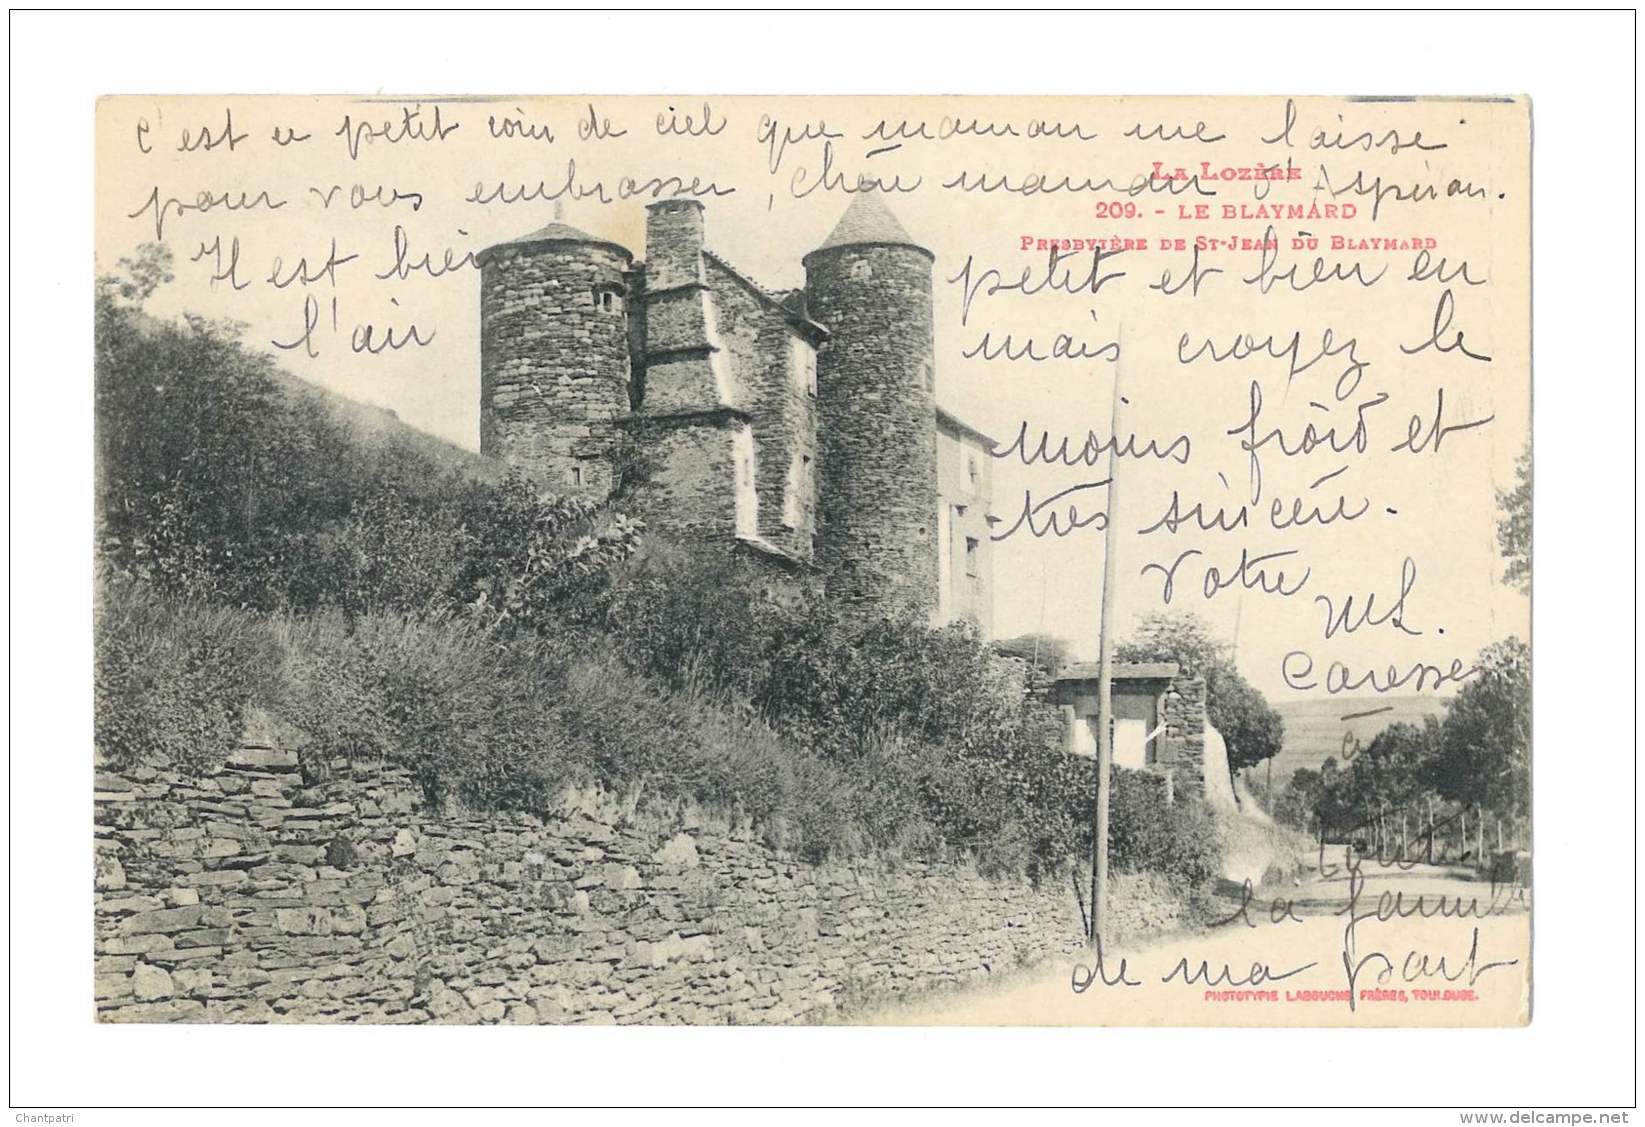 c'est ce petit coin de ciel que maman me laisse
pour vous embrasser, chère maman St Aspéran.
LA LOZÈRE
209. - LE BLAYMARD
PRESBYTÈRE DE ST-JEAN DU BLAYMARD
Il est bien petit et bien en
l'air mais croyez le
moins froid et
très sincère.
Votre
ML.
Caresses
à
toute
la famille
de ma part
PHOTOTYPIE LABOUCHE FRÈRES, TOULOUSE.
Chantpatri
www.delcampe.net